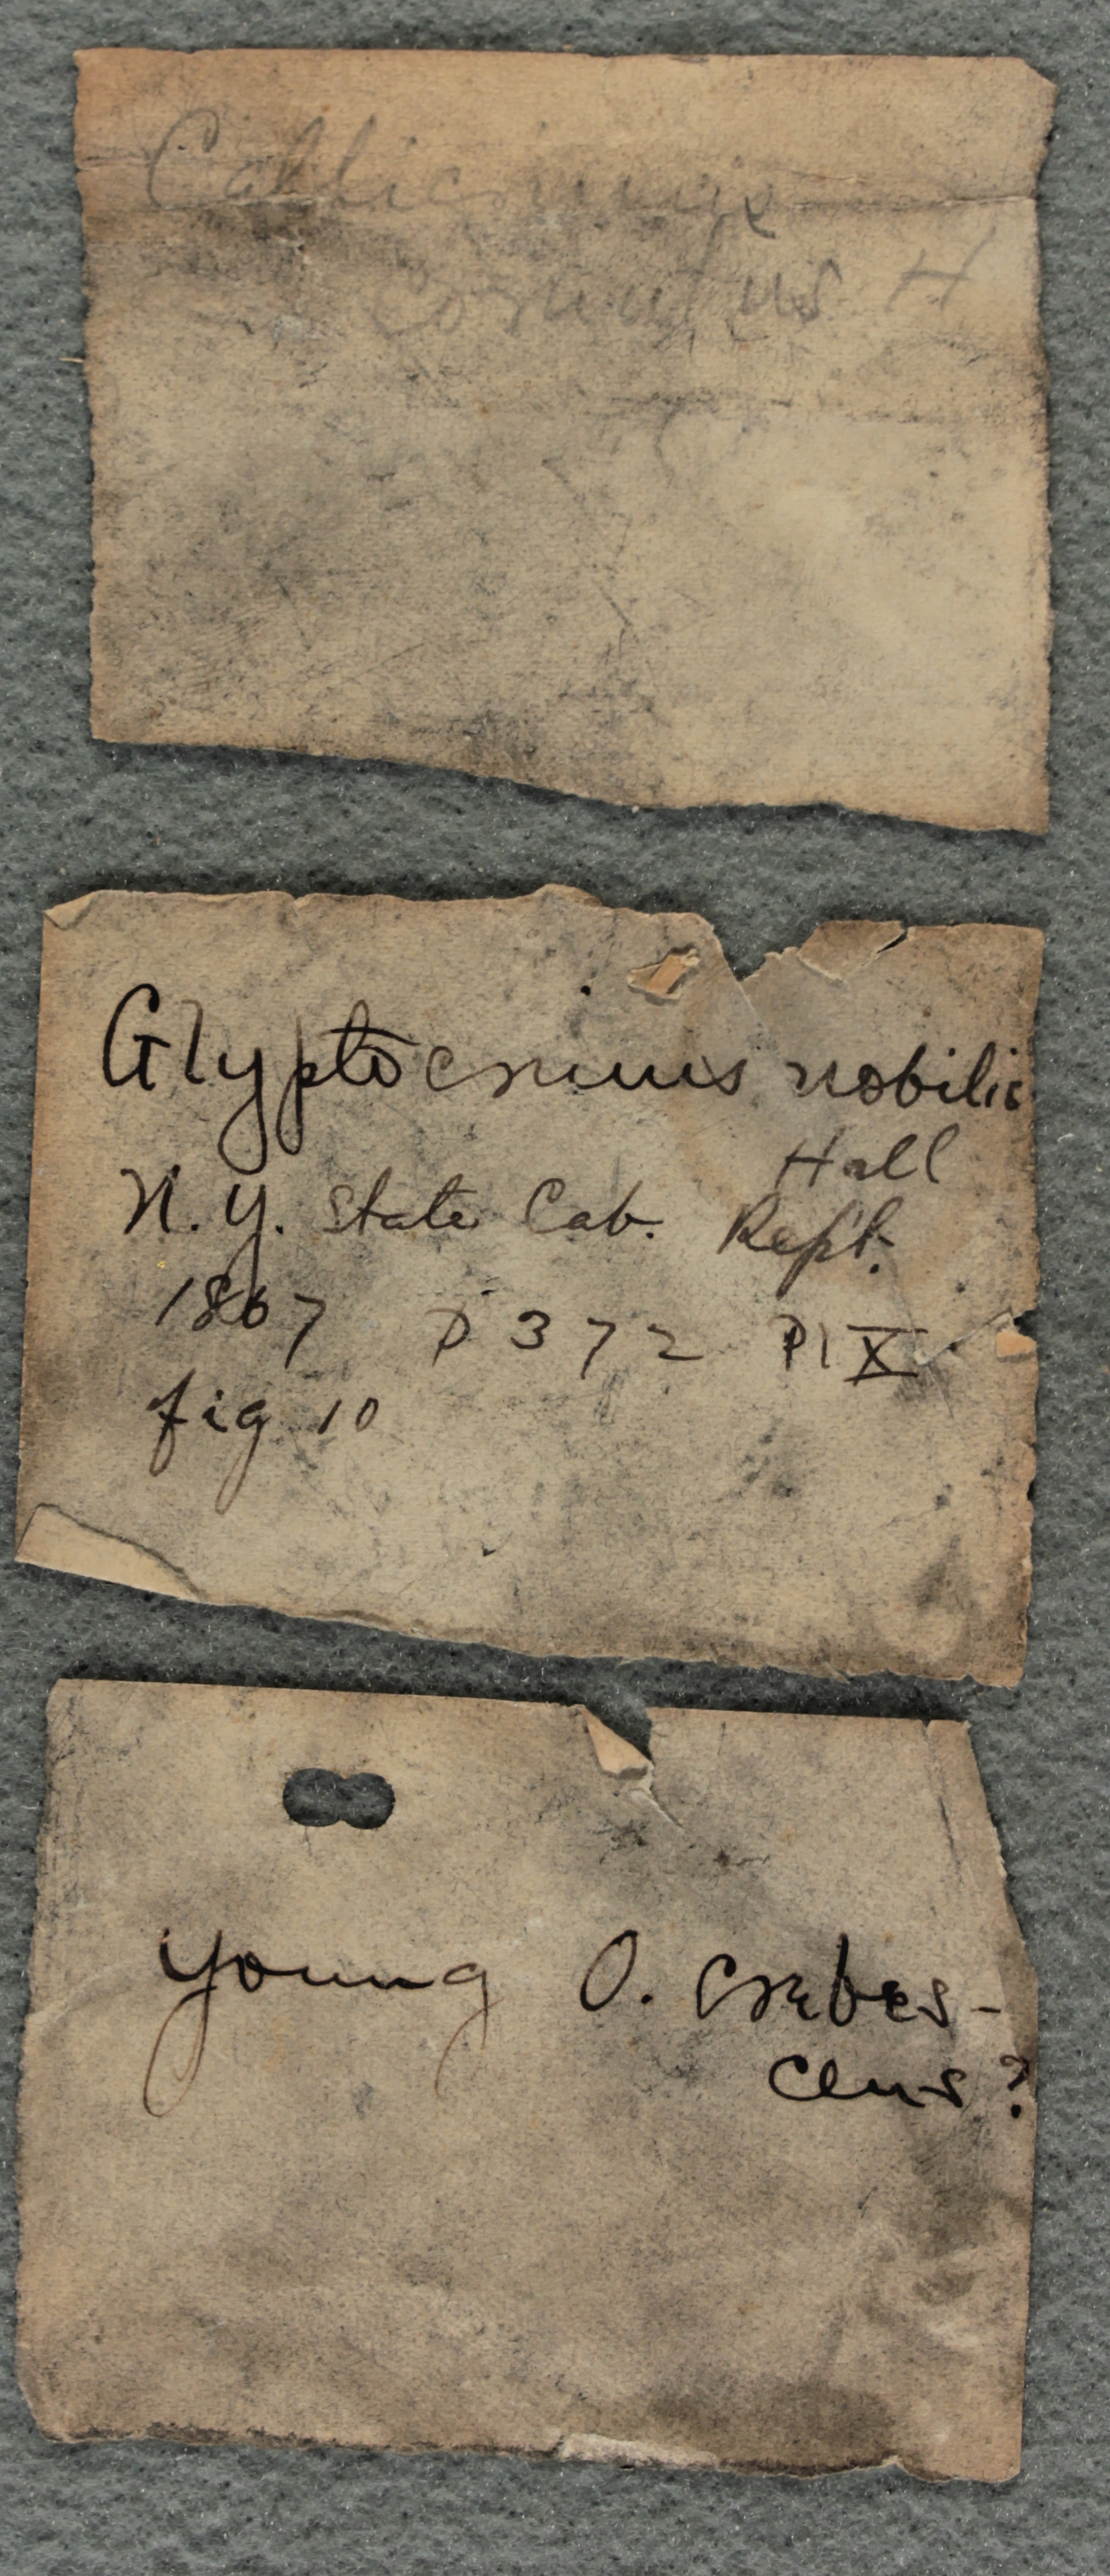 Callicrinus
cornutus H
Glyptocrinus nobilis
Hall
N.Y. State Cab. Rept.
1867 p 372 Pl X
fig 10
young O. crebes-
cens?